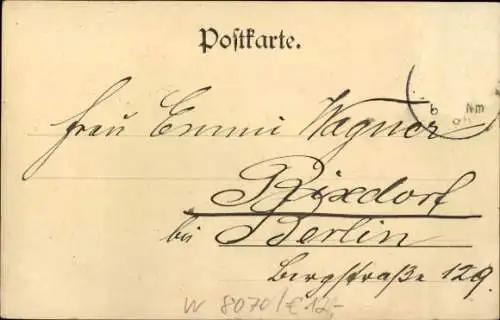 Postkarte.
Frau Emmi Wagner
Rixdorf
bei Berlin
Bergstraße 129.
W 8070/€ 12,-
6 Nm